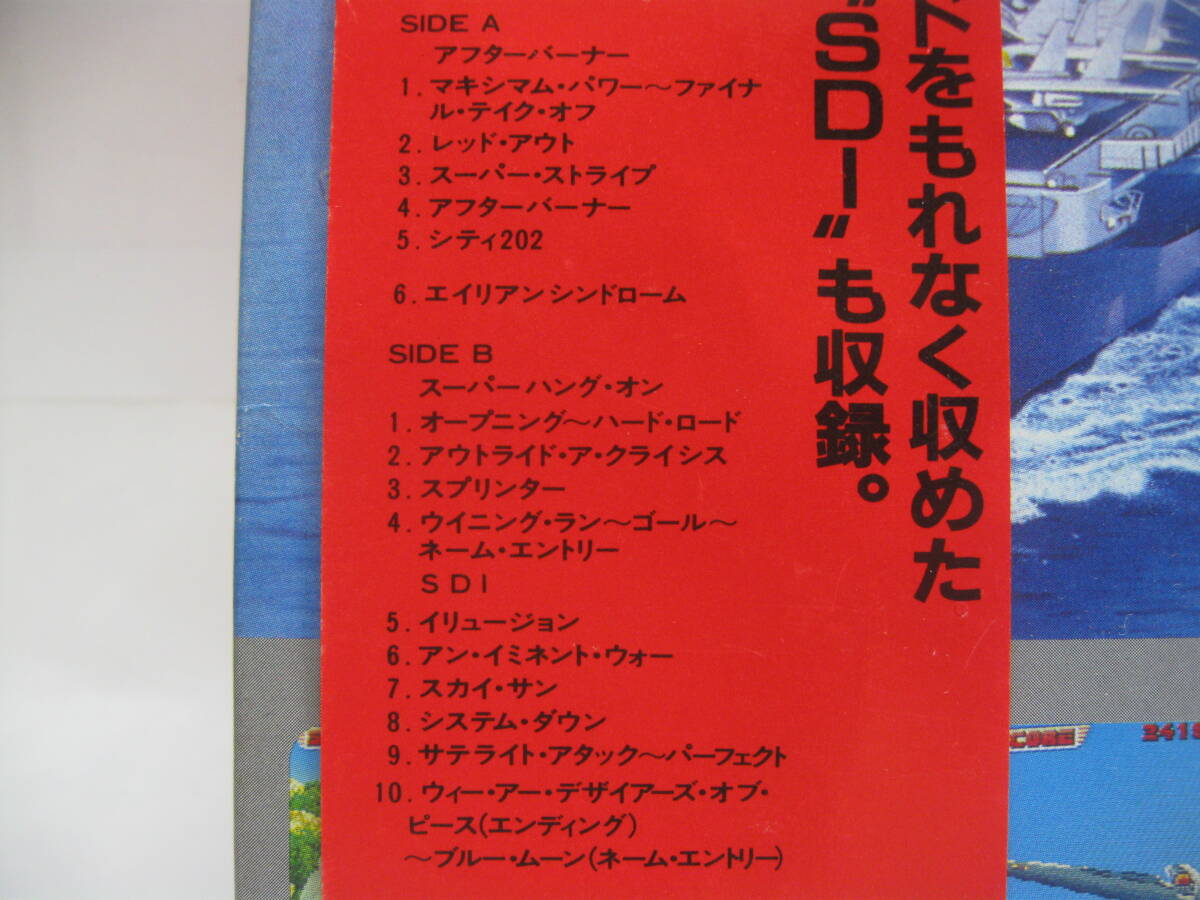 ドをもれなく収めた
“SDI”も収録。
SIDE A
アフターバーナー
1. マキシマム・パワー～ファイナ
ル・テイク・オフ
2. レッド・アウト
3. スーパー・ストライプ
4. アフターバーナー
5. シティ202
6. エイリアンシンドローム
SIDE B
スーパーハング・オン
1. オープニング～ハード・ロード
2. アウトライド・ア・クライシス
3. スプリンター
4. ウイニング・ラン～ゴール～
ネーム・エントリー
SDI
5. イリュージョン
6. アン・イミネント・ウォー
7. スカイ・サン
8. システム・ダウン
9. サテライト・アタック～パーフェクト
10. ウィー・アー・デザイアーズ・オブ・
ピース(エンディング)
～ブルー・ムーン(ネーム・エントリー)